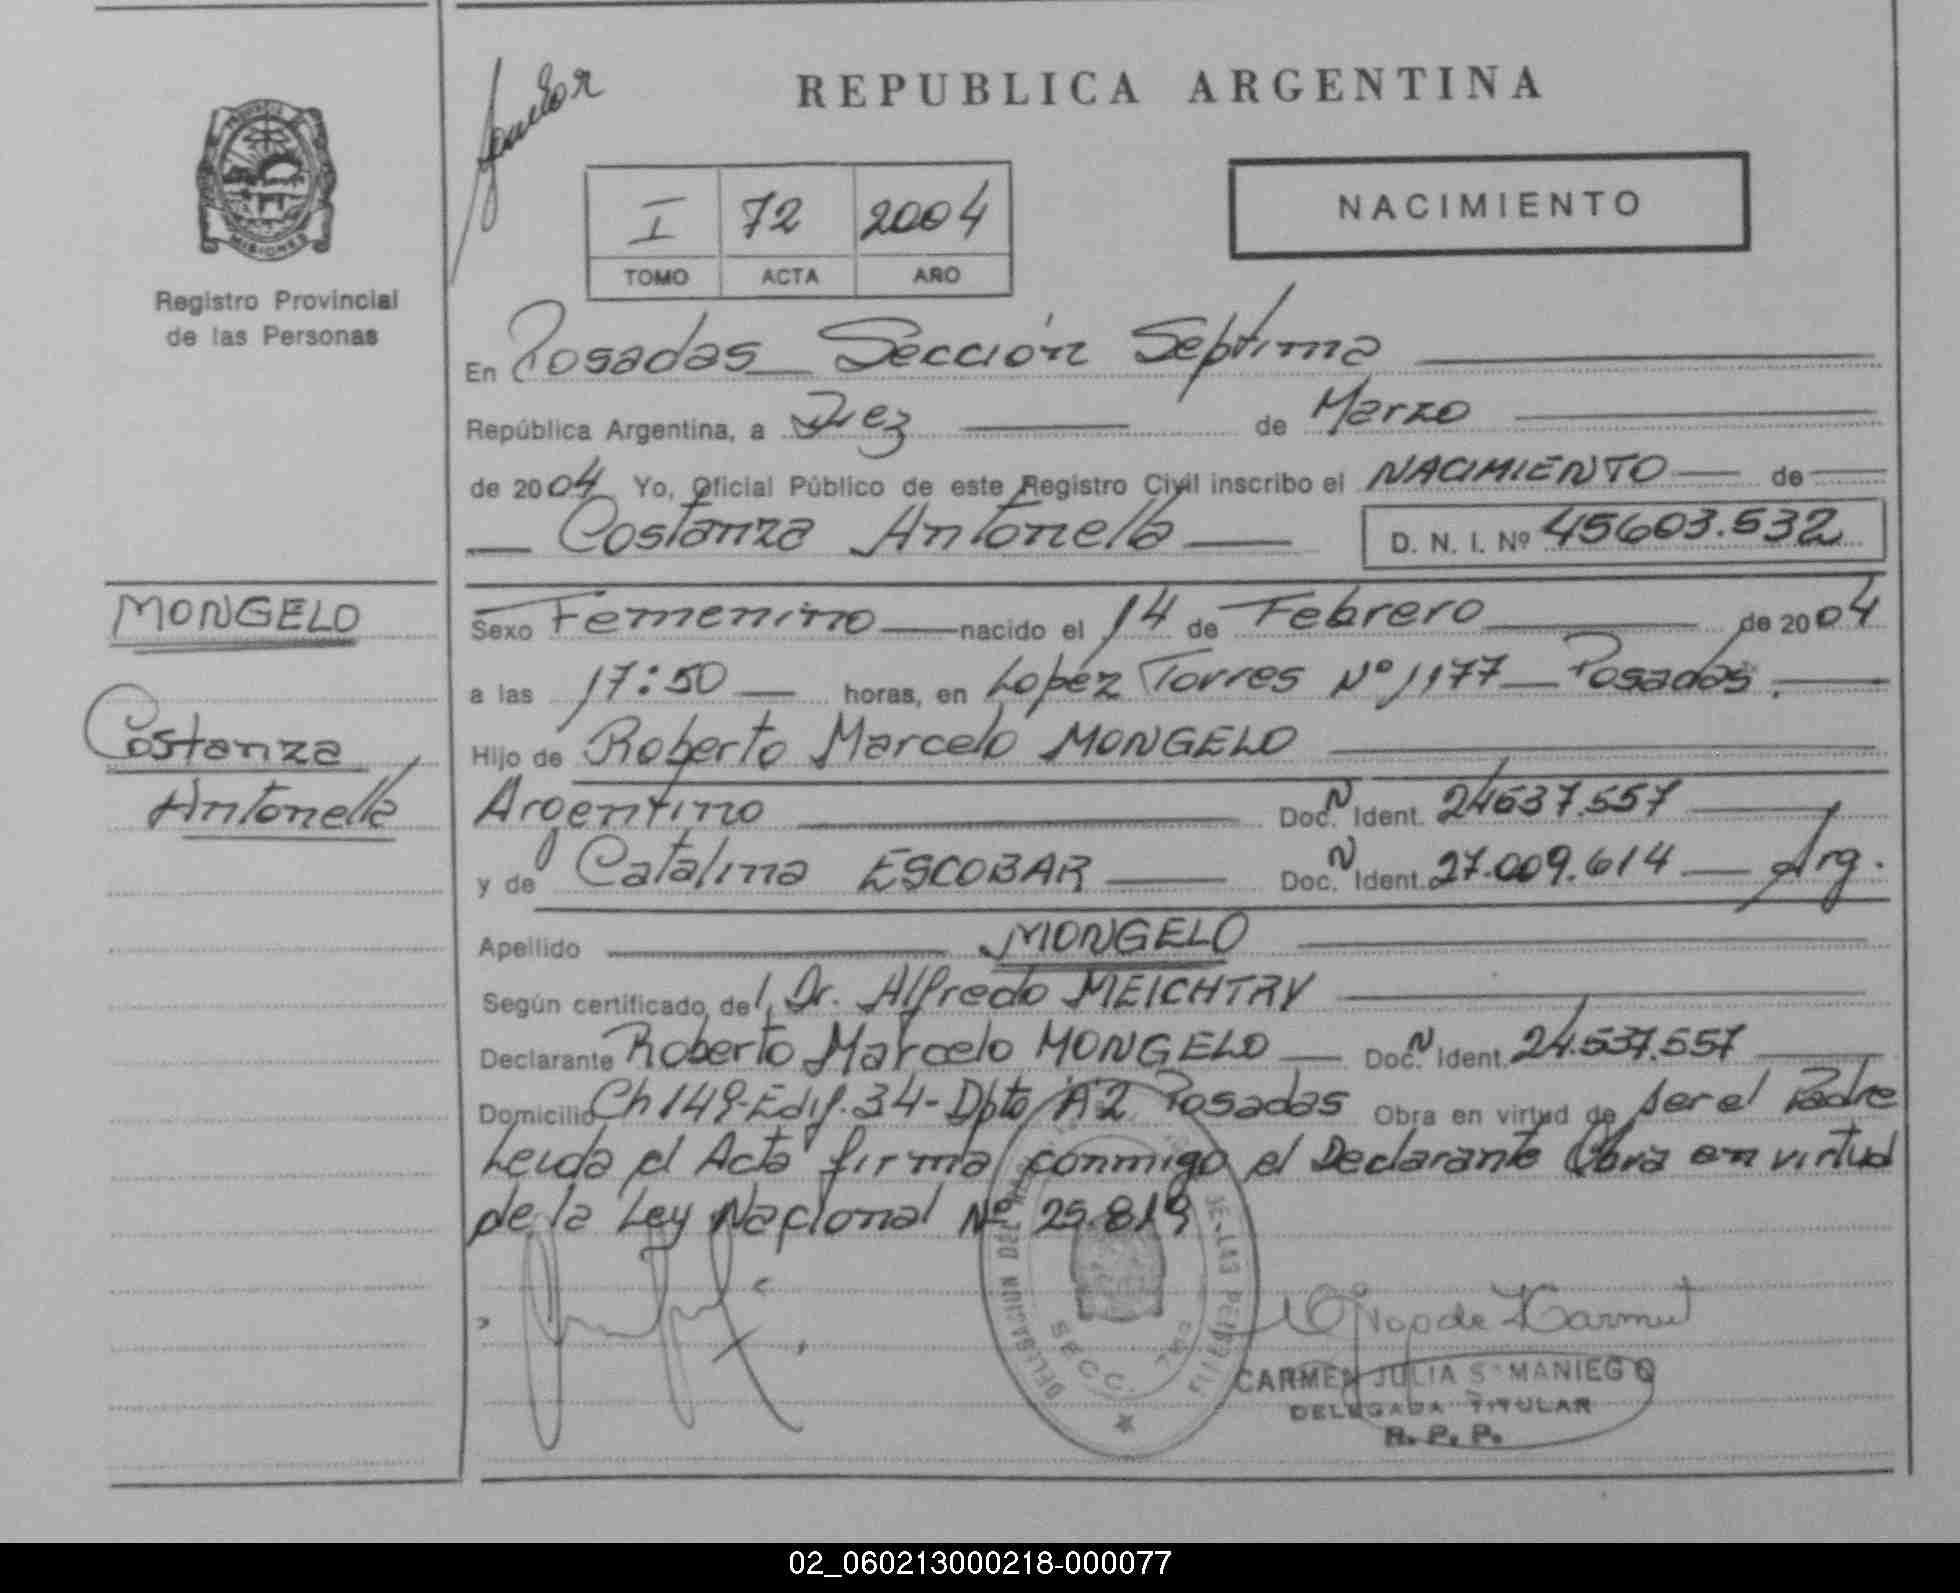 REPUBLICA ARGENTINA
I 72 2004
TOMO ACTA AÑO
NACIMIENTO
PROVINCIA DE
MISIONES
Registro Provincial
de las Personas
En Posadas Sección Septima
República Argentina, a Diez de Marzo
de 2004 Yo, Oficial Público de este Registro Civil inscribo el NACIMIENTO de
Costanza Antonella D. N. I. Nº 45603.532
MONGELO
Costanza
Antonella
Sexo Femenino nacido el 14 de Febrero de 2004
a las 17:50 horas, en Lopez Torres Nº 1177 Posadas.
Hijo de Roberto Marcelo MONGELO
Argentino Doc. N Ident. 24637.557
y de Catalina ESCOBAR Doc. N Ident. 27.009.614 Arg.
Apellido MONGELO
Según certificado del Dr. Alfredo MEICHTRY
Declarante Roberto Marcelo MONGELO Doc. N Ident. 24.537.557
Domicilio Ch 149-Edif. 34-Dpto "A2" Posadas Obra en virtud de ser el Padre
Leida el Acta firma conmigo el Declarante Obra en virtud
de la Ley Nacional Nº 25.819
DELEGACION DEL DE LAS PERSONAS
SECC. 7ma
CARMEN JULIA SAMANIEGO
DELEGADA TITULAR
R. P. P.
02_060213000218-000077